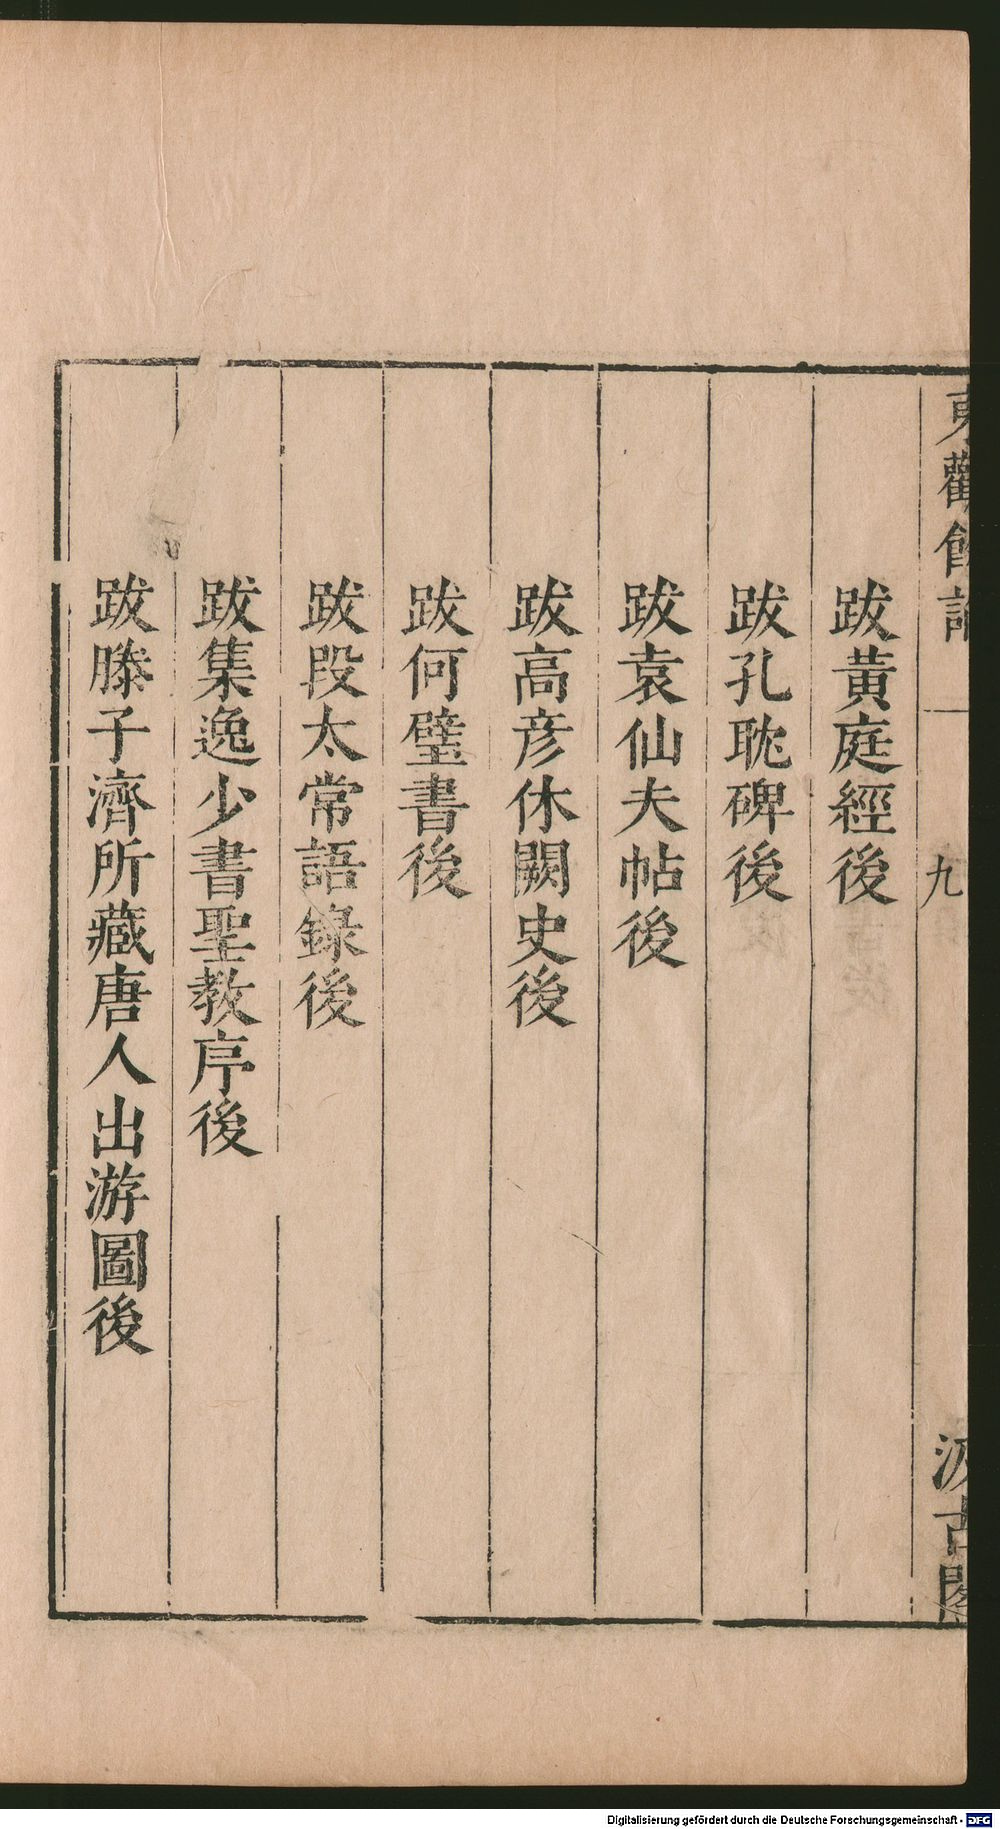 東觀餘論
九
汲古閣
跋黃庭經後
跋孔耽碑後
跋袁仙夫帖後
跋高彥休闕史後
跋何璧書後
跋段太常語錄後
跋集逸少書聖教序後
跋滕子濟所藏唐人出游圖後
Digitalisierung gefördert durch die Deutsche Forschungsgemeinschaft - DFG